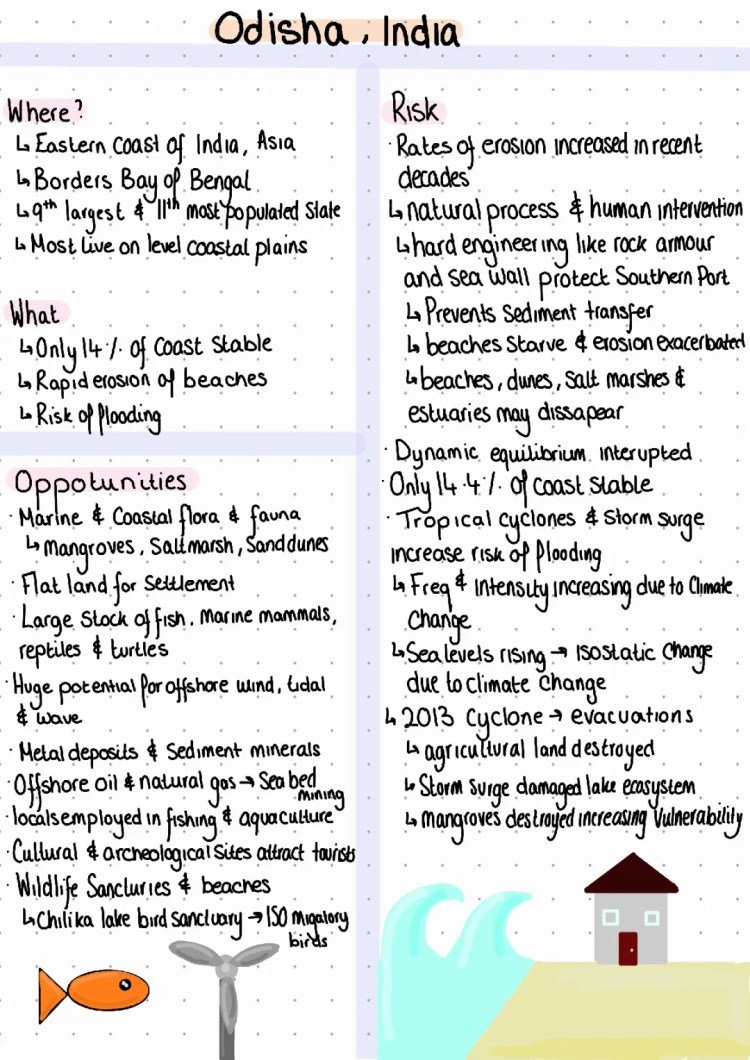 Odisha, India
Where?
↳ Eastern coast of India, Asia
↳ Borders Bay of Bengal
↳ 9th largest & 11th most populated State
↳ Most live on level coastal plains
What
↳ Only 14% of Coast Stable
↳ Rapid erosion of beaches
↳ Risk of flooding
Oppotunities
· Marine & Coastal flora & fauna
↳ Mangroves, Saltmarsh, Sanddunes
· Flat land for Settlement
· Large Stock of fish, Marine mammals,
reptiles & turtles
· Huge potential for offshore wind, tidal
& wave
· Metal deposits & Sediment minerals
· Offshore oil & natural gas → Sea bed
mining
· locals employed in fishing & aquaculture
· Cultural & archeological Sites attract tourists
· Wildlife Sancturies & beaches
↳ Chilika lake bird sanctuary → 150 migatory
birds
Risk
· Rates of erosion increased in recent
decades
↳ natural process & human intervention
↳ hard engineering like rock armour
and sea wall protect Southern Port
↳ Prevents Sediment transfer
↳ beaches starve & erosion exacerbated
↳ beaches, dunes, Salt marshes &
estuaries may dissapear
· Dynamic equilibrium interupted
· Only 14.4% of coast stable
· Tropical cyclones & Storm surge
increase risk of flooding
↳ Freq & Intensity increasing due to Climate
Change
↳ Sea levels rising → Isostatic Change
due to Climate Change
↳ 2013 Cyclone → evacuations
↳ agricultural land destroyed
↳ Storm Surge damaged lake ecosystem
↳ mangroves destroyed increasing Vulnerability